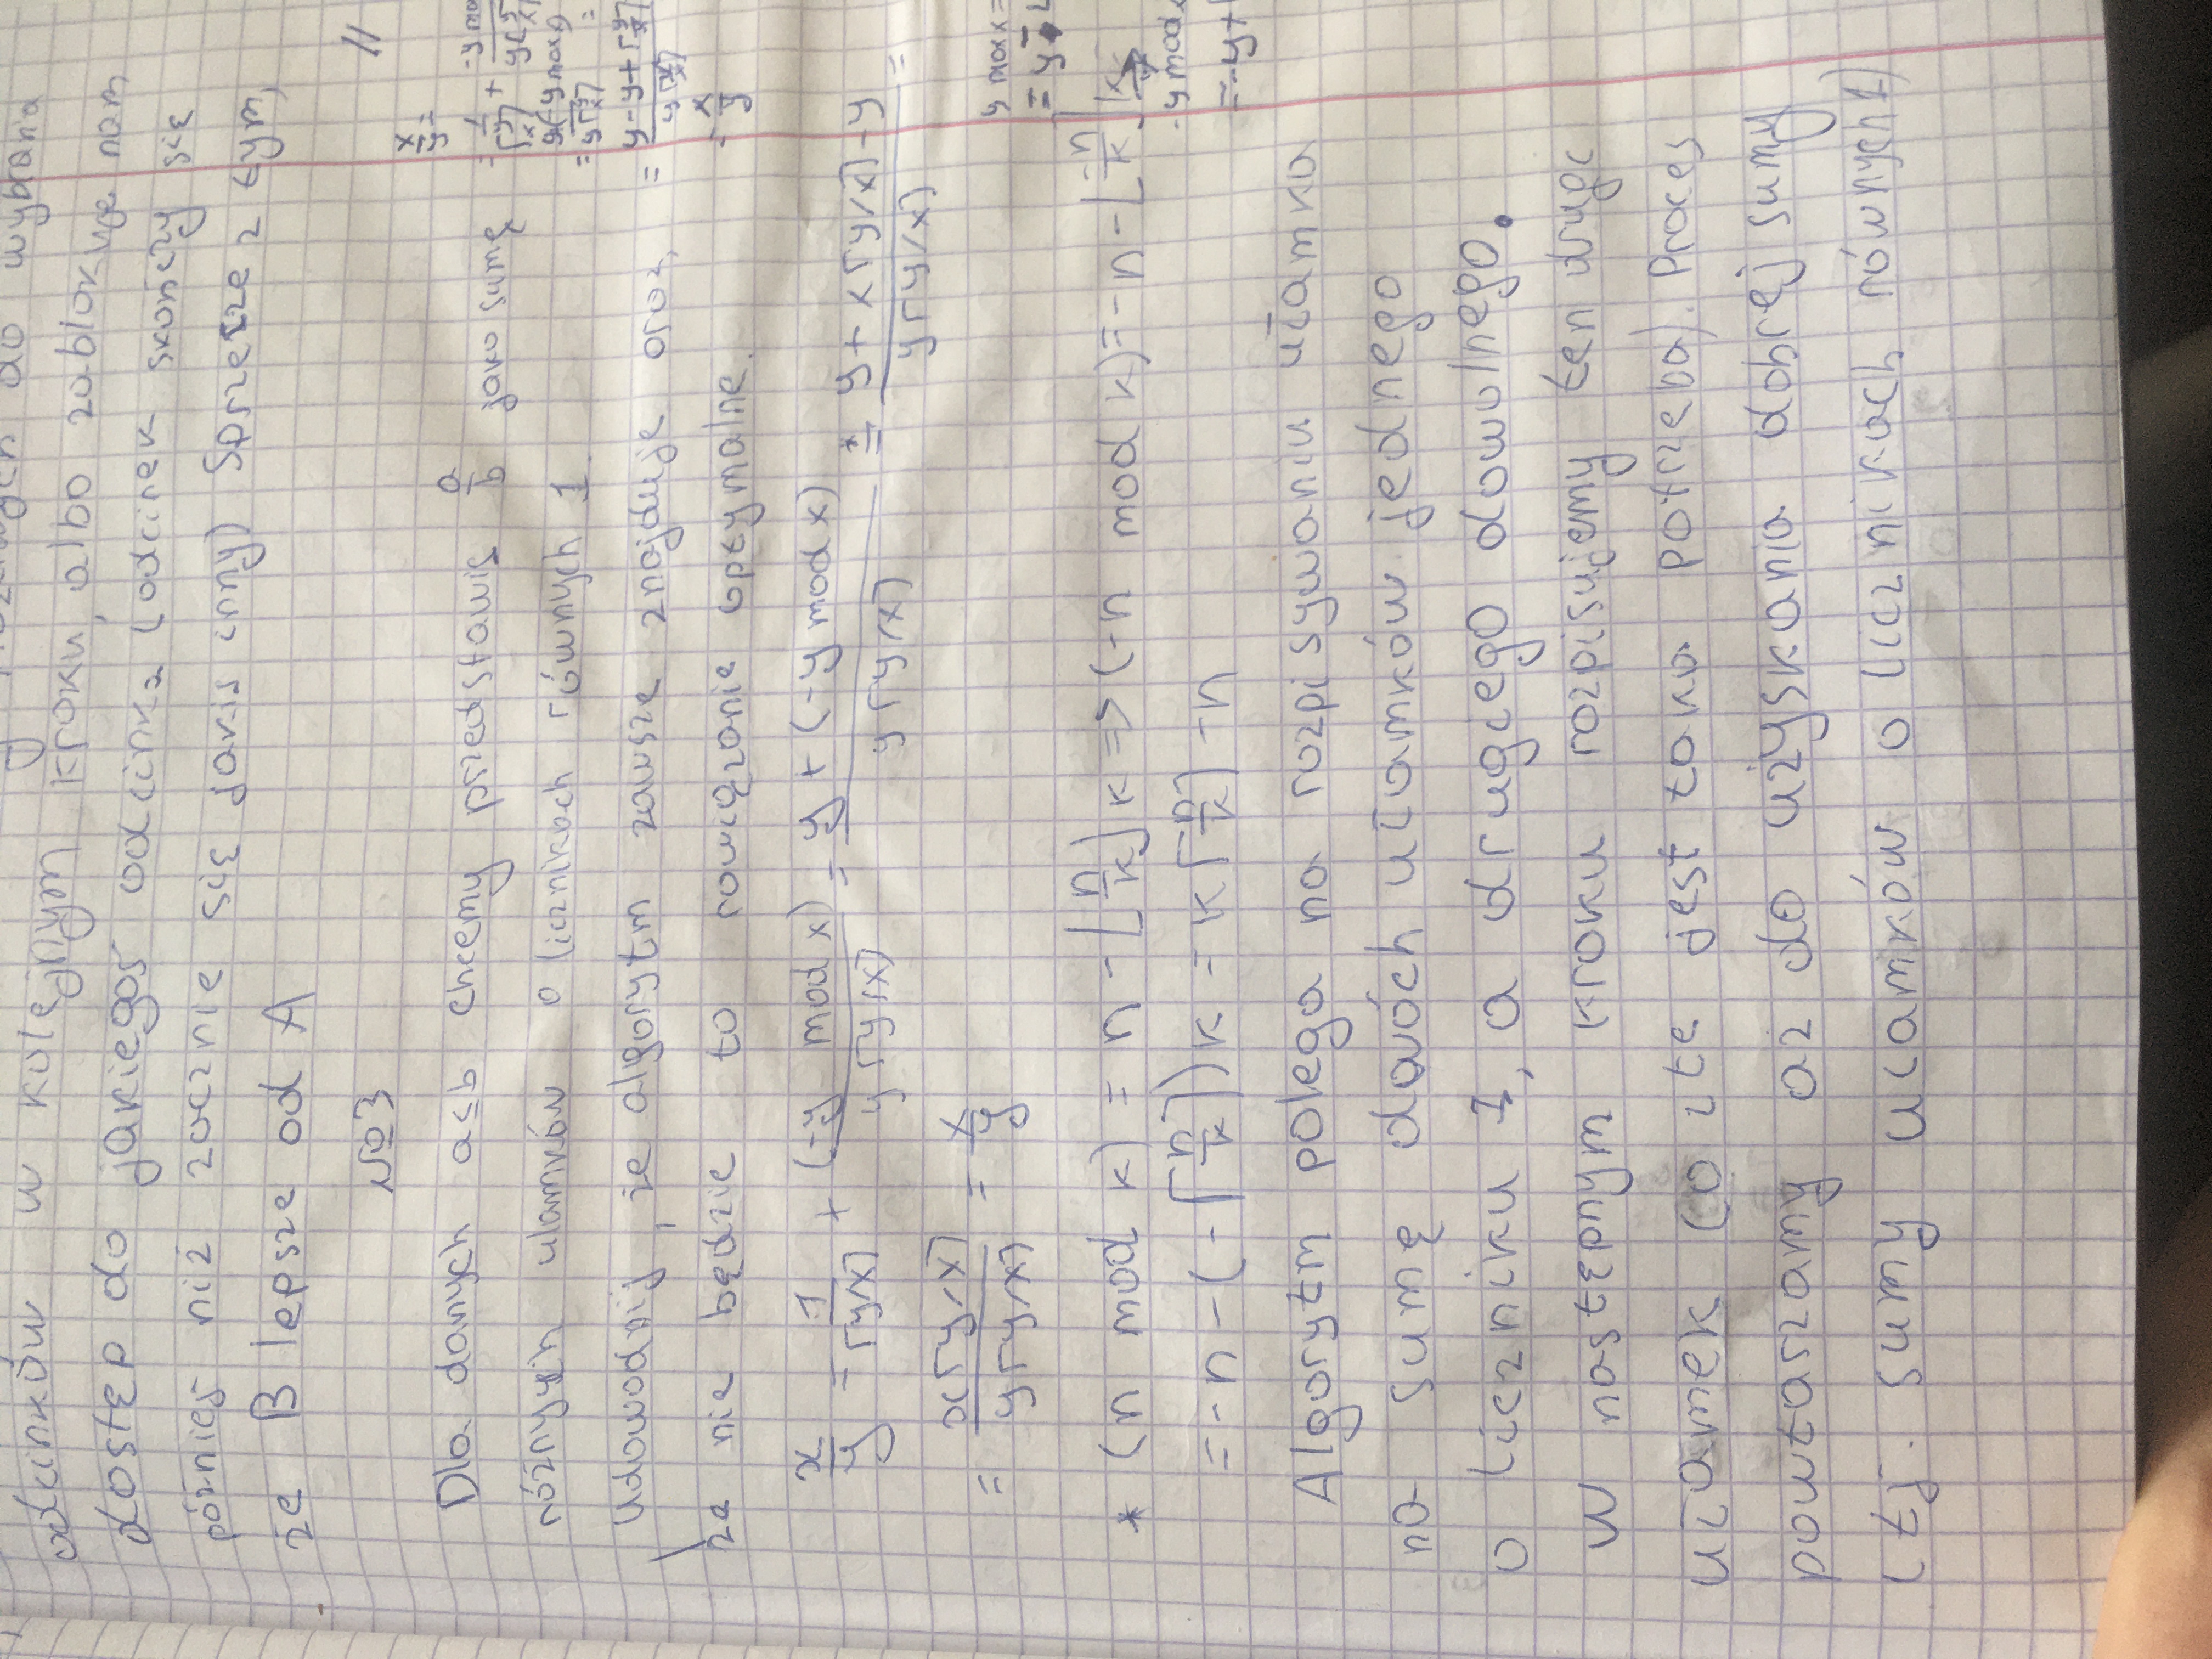 do wybrania
odcinków w kolejnym kroku, albo zablokuje nam
dostęp do jakiegoś odcinka (odcinek skończy się
później niż zacznie się jakiś inny) Sprzeczne z tym,
że B lepsze od A
№3
Dla danych a≤b chcemy przedstawić a/b jako sumę
różnych ułamków o licznikach równych 1.
Udowodnij, że algorytm zawsze znajduje oraz,
że nie będzie to rowiązanie optymalne.
x/y = 1/⌈y/x⌉ + (-y mod x)/y⌈y/x⌉ = y + (-y mod x)/y⌈y/x⌉ *= y + x⌈y/x⌉ - y/y⌈y/x⌉ =
= x⌈y/x⌉/y⌈y/x⌉ = x/y
* (n mod k) = n - ⌊n/k⌋k => (-n mod k) = -n - ⌊-n/k⌋k
= -n - (-⌈n/k⌉)k = k⌈n/k⌉ - n
Algorytm polega na rozpisywaniu ułamka
na sumę dwóch ułamków jednego
o liczniku 1, a drugiego dowolnego.
W następnym kroku rozpisujemy ten drugi
ułamek (o ile jest taka potrzeba). Proces
powtarzamy aż do użyskania dobrej sumy
(tj. sumy ułamków o licznikach równych 1)
11
x/y =
y mod x =
-y mod
= -y +